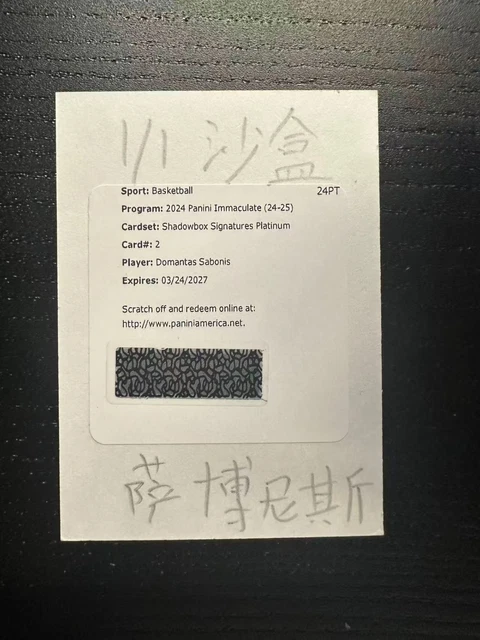 1/1 沙盒
Sport: Basketball 24PT
Program: 2024 Panini Immaculate (24-25)
Cardset: Shadowbox Signatures Platinum
Card#: 2
Player: Domantas Sabonis
Expires: 03/24/2027
Scratch off and redeem online at:
http://www.paniniamerica.net.
萨博尼其斤